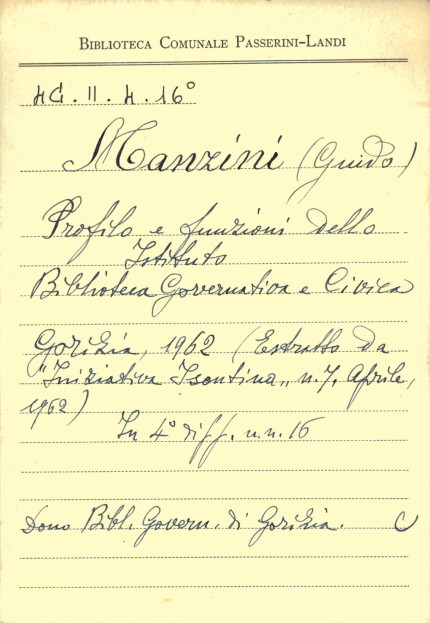 BIBLIOTECA COMUNALE PASSERINI-LANDI
4G.II.4.16°
Manzini (Guido)
Profilo e funzioni dello
Istituto
Biblioteca Governativa e Civica
Gorizia, 1962 (Estratto da
"Iniziativa Isontina„ n.7, Aprile,
1962)
In 4° diff. n.n. 16
Dono Bibl. Govern. di Gorizia. C